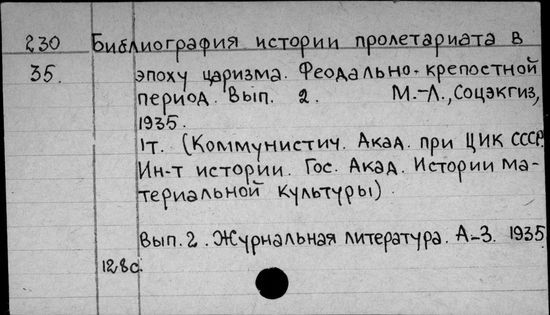 230 Библиография истории пролетариата в
35. эпоху царизма. Феодально-крепостной
период. Вып. 2. М.-Л., Соцэкгиз,
1935.
1т. (Коммунистич. Акад. при ЦИК СССР
Ин-т истории. Гос. Акад. Истории ма-
териальной культуры).
Вып. 2. Журнальная литература. А-З. 1935
128с.